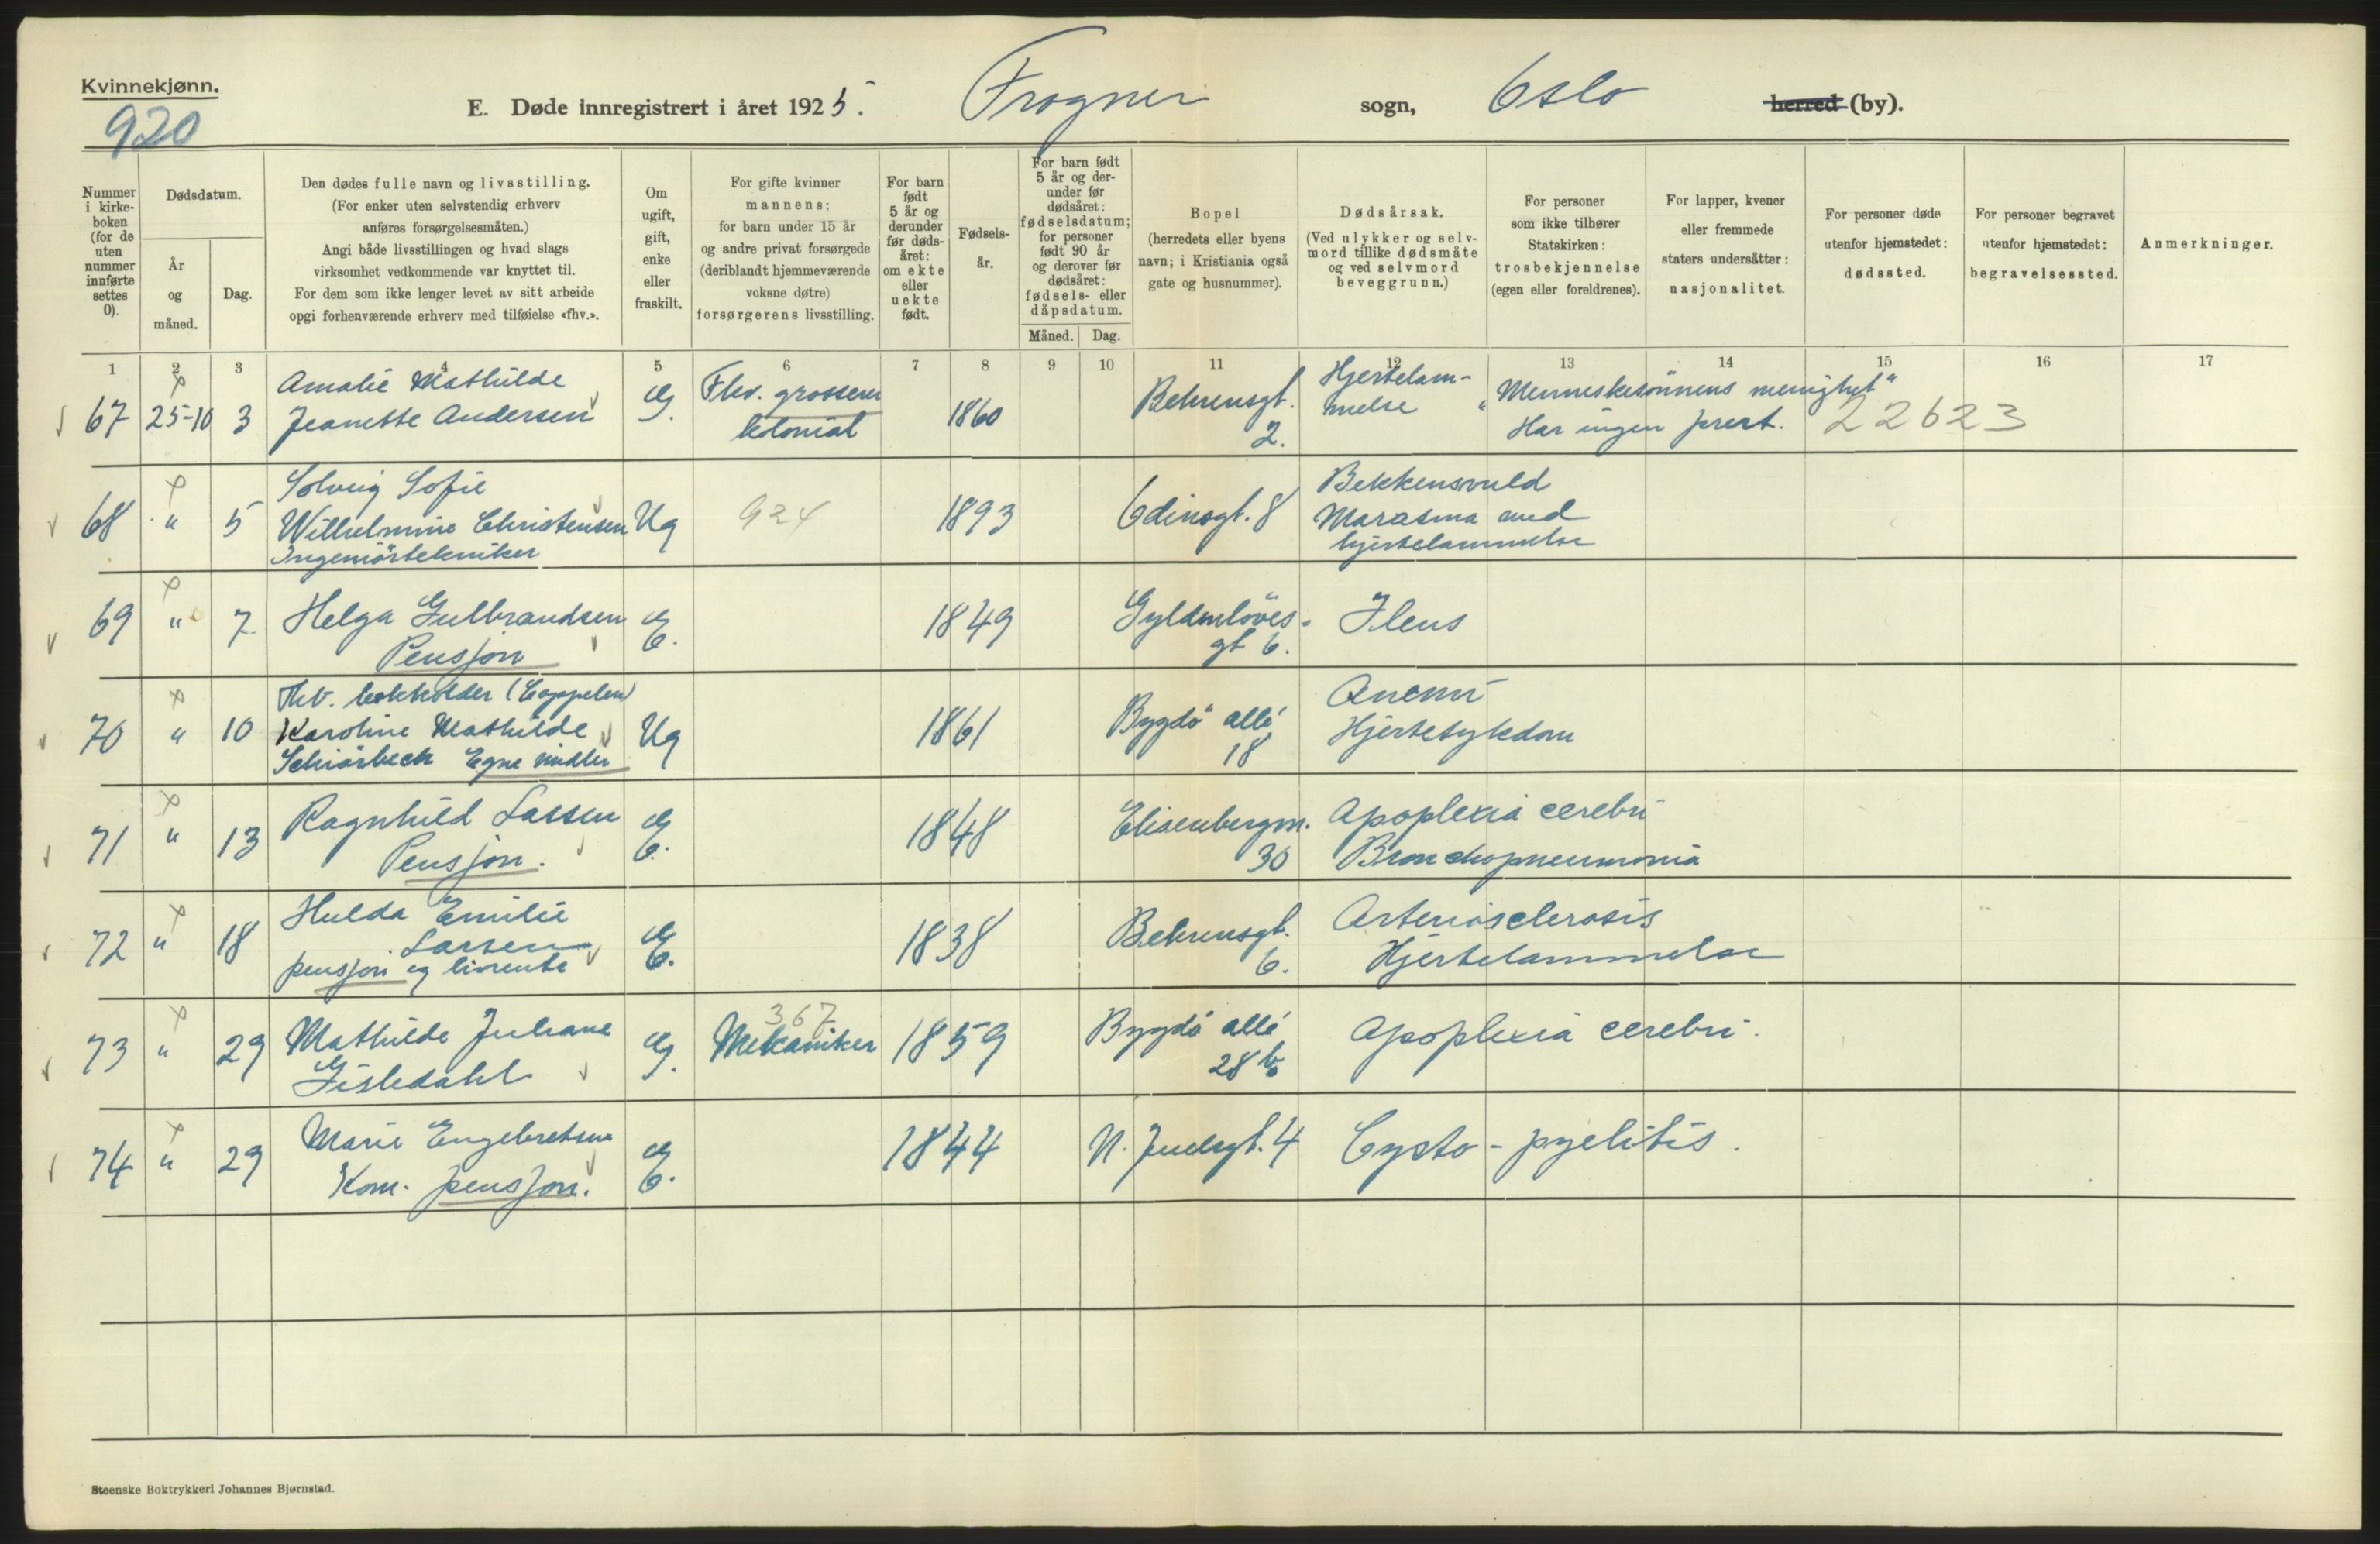 Kvinnekjønn.
920
E. Døde innregistrert i året 1925. Frogner sogn, Oslo herred (by).
Nummer
i kirke-
boken
(for de
uten
nummer
innførte
settes
0).
Dødsdatum.
År
og
måned.
Dag.
Den dødes fulle navn og livsstilling.
(For enker uten selvstendig erhverv
anføres forsørgelsesmåten.)
Angi både livsstillingen og hvad slags
virksomhet vedkommende var knyttet til.
For dem som ikke lenger levet av sitt arbeide
opgi forhenværende erhverv med tilføielse «fhv.».
Om
ugift,
gift,
enke
eller
fraskilt.
For gifte kvinner
mannens;
for barn under 15 år
og andre privat forsørgede
(deriblandt hjemmeværende
voksne døtre)
forsørgerens livsstilling.
For barn
født
5 år og
derunder
før døds-
året:
om ekte
eller
uekte
født.
Fødsels-
år.
For barn født
5 år og der-
under før
dødsåret:
fødselsdatum;
for personer
født 90 år
og derover før
dødsåret:
fødsels- eller
dåpsdatum.
Måned. Dag.
Bopel
(herredets eller byens
navn; i Kristiania også
gate og husnummer).
Dødsårsak.
(Ved ulykker og selv-
mord tillike dødsmåte
og ved selvmord
beveggrunn.)
For personer
som ikke tilhører
Statskirken:
trosbekjennelse
(egen eller foreldrenes).
For lapper, kvener
eller fremmede
staters undersåtter:
nasjonalitet.
For personer døde
utenfor hjemstedet:
dødssted.
For personer begravet
utenfor hjemstedet:
begravelsessted.
Anmerkninger.
1 2 3 4 5 6 7 8 9 10 11 12 13 14 15 16 17
67 25-10 3 Amalie Mathilde
Jeanette Andersen G. Fhv. grosserer
kolonial 1860 Behrensgt.
2. Hjertelam-
melse "Menneskesønnens menighet"
Har ingen prest. 22623
68 " 5 Solveig Sofie
Wilhelmine Christensen
Ingeniörtekniker Ug 924 1893 Odinsgt. 8 Bekkensvuld
Marasma med
hjertelammelse
69 " 7 Helga Gulbrandsen
Pensjon E. 1849 Gyldenløves-
gt 6. Ileus
70 " 10 Fhv. bokholder (Cappelen)
Karoline Mathilde
Schiörbeck Egne midler Ug 1861 Bygdö allé
18 Anemi
Hjertesykdom
71 " 13 Ragnhild Lassen
Pensjon. E. 1848 Elisenbergvn.
30 Apoplexia cerebri
Bronchopneumonia
72 " 18 Hulda Emilie
Larsen
pensjon og livrente E. 1838 Behrensgt.
6. Arteriosclerosis
Hjertelammelse
73 " 29 Mathilde Juliane
Gisledahl G. 367
Mekaniker 1859 Bygdö allé
28 b Apoplexia cerebri.
74 " 29 Marie Engebretsen
Kom. pensjon. E. 1844 N. Juelsgt. 4 Cysto-pyelitis.
Steenske Boktrykkeri Johannes Bjørnstad.